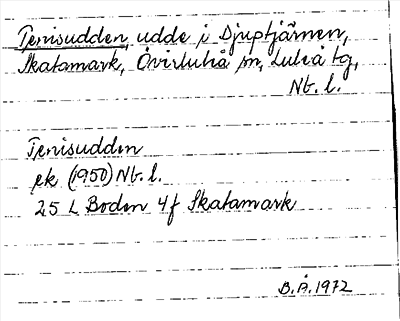 Tjenisudden, udde i Djuptjärnen,
Skatamark, Överluleå sn, Luleå tg,
Nb. l.
Tjenisudden
ek (1950) Nb. l.
25 L Boden 4f Skatamark
B.Å. 1972